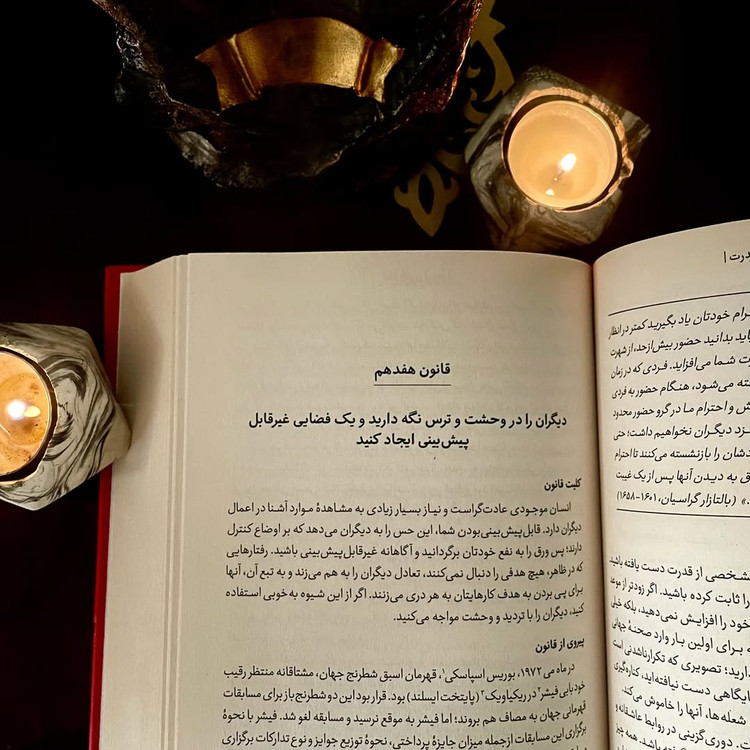 قدرت |
یاد بگیرید کمتر در انظار
باید بدانید حضور بیش‌ازحد، از شهرت
شما می‌افزاید. فردی که در زمان
می‌شود، هنگام حضور به فردی
و احترام ما در گرو حضور محدود
دیگران نخواهیم داشت؛ حتی
را بازنشسته می‌کنند تا احترام
به دیدن آنها پس از یک غیبت
(بالتازار گراسیان، ۱۶۰۱-۱۶۵۸)
شخصی از قدرت دست یافته باشید
را ثابت کرده باشید. اگر زودتر از موعد
خود را افزایش نمی‌دهید، بلکه خیلی
برای اولین بار وارد صحنهٔ جهانی
دارید؛ تصویری که تکرارناشدنی است
جایگاهی دست نیافته‌اید، کناره‌گیری
شعله‌ها، آنها را خاموش می‌کند.
دوری‌گزینی در روابط عاشقانه و
باشد، همه چیز
قانون هفدهم
دیگران را در وحشت و ترس نگه دارید و یک فضایی غیرقابل
پیش‌بینی ایجاد کنید
کلیت قانون
انسان موجودی عادت‌گراست و نیاز بسیار زیادی به مشاهدهٔ موارد آشنا در اعمال
دیگران دارد. قابل‌پیش‌بینی‌بودن شما، این حس را به دیگران می‌دهد که بر اوضاع کنترل
دارند؛ پس ورق را به نفع خودتان برگردانید و آگاهانه غیرقابل‌پیش‌بینی باشید. رفتارهایی
که در ظاهر، هیچ هدفی را دنبال نمی‌کنند، تعادل دیگران را به هم می‌زند و به تبع آن، آنها
برای پی بردن به هدف کارهایتان به هر دری می‌زنند. اگر از این شیوه به خوبی استفاده
کنید، دیگران را با تردید و وحشت مواجه می‌کنید.
پیروی از قانون
در ماه می ۱۹۷۲، بوریس اسپاسکی۱، قهرمان اسبق شطرنج جهان، مشتاقانه منتظر رقیب
خود بابی فیشر۲ در ریکیاویک۳ (پایتخت ایسلند) بود. قرار بود این دو شطرنج‌باز برای مسابقات
قهرمانی جهان به مصاف هم بروند؛ اما فیشر به موقع نرسید و مسابقه لغو شد. فیشر با نحوهٔ
برگزاری این مسابقات ازجمله میزان جایزهٔ پرداختی، نحوهٔ توزیع جوایز و نوع تدارکات برگزاری